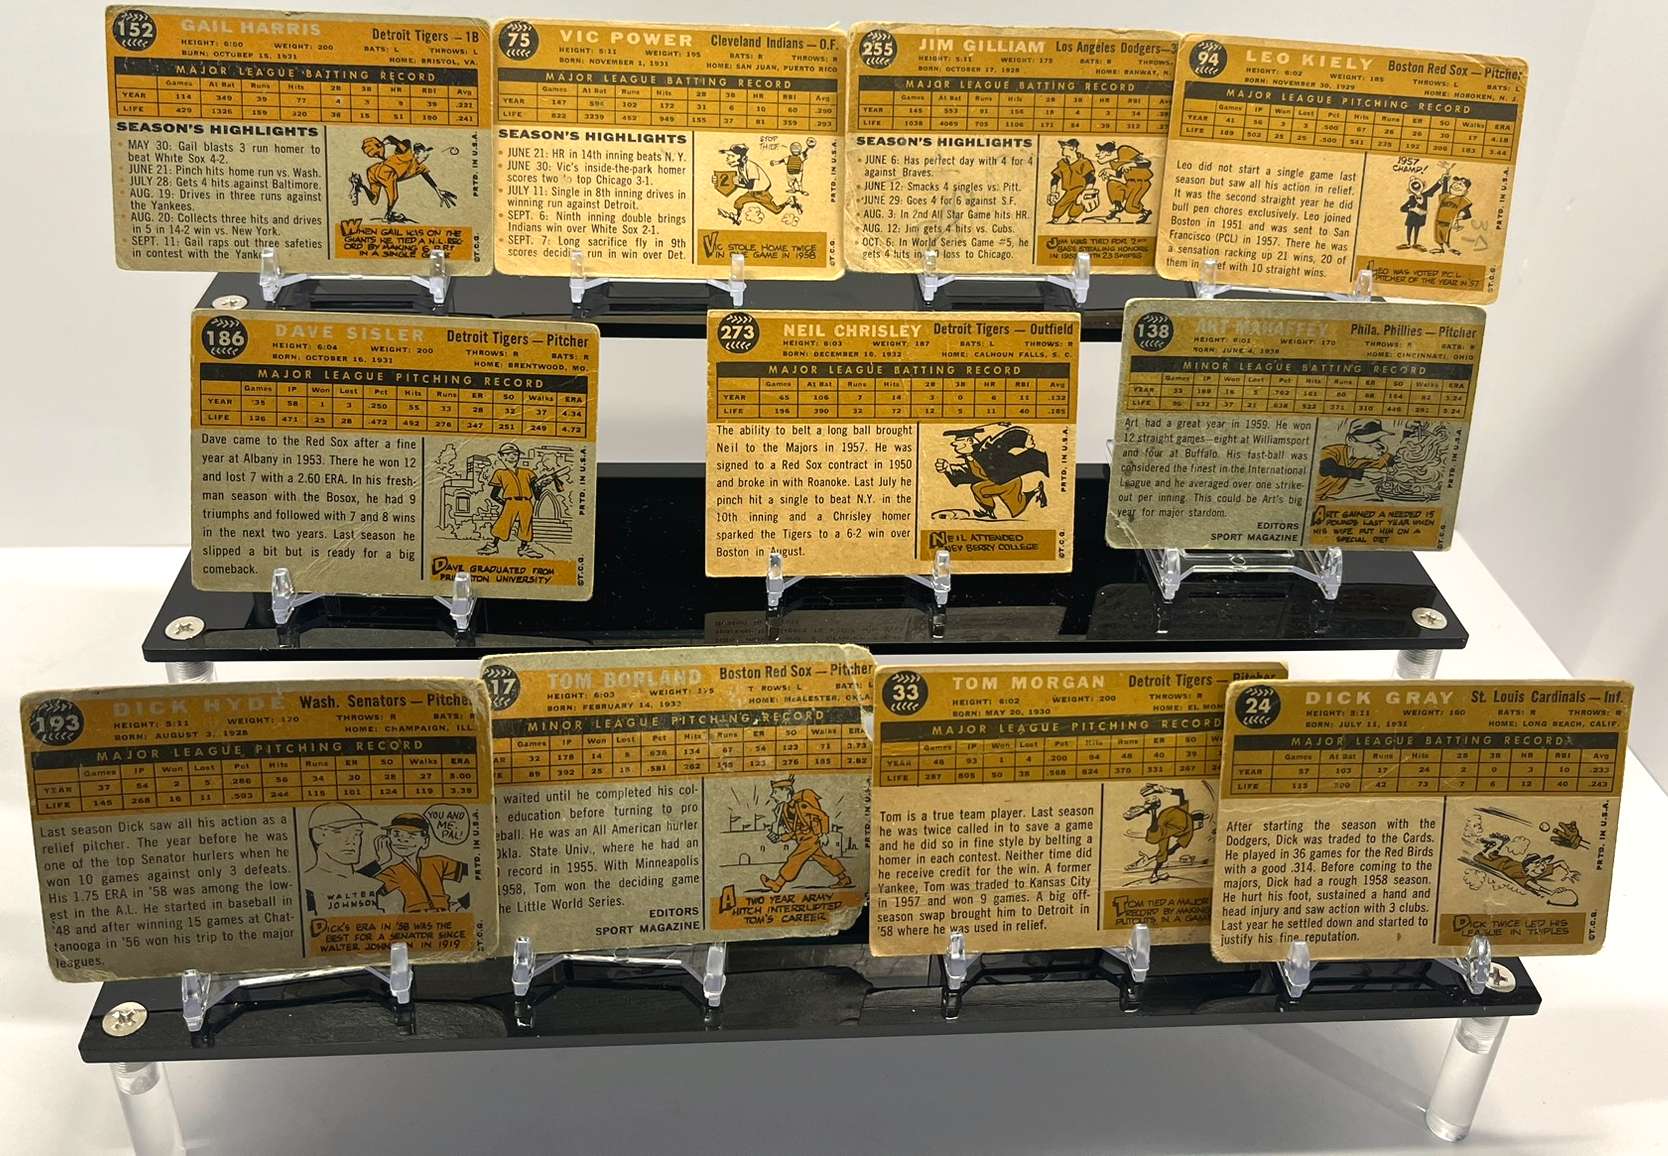 152
GAIL HARRIS
Detroit Tigers — 1B
HEIGHT: 6:00 WEIGHT: 200 BATS: L THROWS: L
BORN: OCTOBER 15, 1931 HOME: BRISTOL, VA.
MAJOR LEAGUE BATTING RECORD
Games At Bat Runs Hits 2B 3B HR RBI Avg
YEAR 114 349 39 77 4 3 9 39 .221
LIFE 429 1326 159 320 38 15 51 190 .241
SEASON'S HIGHLIGHTS
MAY 30: Gail blasts 3 run homer to
beat White Sox 4-2.
JUNE 21: Pinch hits home run vs. Wash.
JULY 28: Gets 4 hits against Baltimore.
AUG. 19: Drives in three runs against
the Yankees.
AUG. 20: Collects three hits and drives
in 5 in 14-2 win vs. New York.
SEPT. 11: Gail raps out three safeties
in contest with the
WHEN GAIL WAS ON THE
GIANTS HE TIED A N.L. REC-
ORD BY MAKING 2
IN A SINGLE
PRTD. IN U.S.A.
©T.C.G.
75
VIC POWER
Cleveland Indians — O.F.
HEIGHT: 5:11 WEIGHT: 195 BATS: R THROWS: R
BORN: NOVEMBER 1, 1931 HOME: SAN JUAN, PUERTO RICO
MAJOR LEAGUE BATTING RECORD
Games At Bat Runs Hits 2B 3B HR RBI Avg
YEAR 147 595 102 172 31 6 10 60 .290
LIFE 822 3239 452 949 155 37 81 359 .293
SEASON'S HIGHLIGHTS
JUNE 21: HR in 14th inning beats N. Y.
JUNE 30: Vic's inside-the-park homer
scores two to top Chicago 3-1.
JULY 11: Single in 8th inning drives in
winning run against Detroit.
SEPT. 6: Ninth inning double brings
Indians win over White Sox 2-1.
SEPT. 7: Long sacrifice fly in 9th
scores deciding run in win over Det.
STOP
THIEF
VIC STOLE HOME TWICE
IN ONE GAME IN 1958
PRTD. IN U.S.A.
©T.C.G.
255
JIM GILLIAM
Los Angeles Dodgers—3
HEIGHT: 5:11 WEIGHT: 175 BATS: R THROWS:
BORN: OCTOBER 17, 1928 HOME: RAHWAY, N.
MAJOR LEAGUE BATTING RECORD
Games At Bat Runs Hits 2B 3B HR RBI
YEAR 145 553 91 156 18 4 3 34
LIFE 1038 4069 705 1106 171 54 39 312
SEASON'S HIGHLIGHTS
JUNE 6: Has perfect day with 4 for 4
against Braves.
JUNE 12: Smacks 4 singles vs. Pitt.
JUNE 29: Goes 4 for 6 against S.F.
AUG. 3: In 2nd All Star Game hits HR.
AUG. 12: Jim gets 4 hits vs. Cubs.
OCT. 6: In World Series Game #5, he
gets 4 hits in loss to Chicago.
JIM WAS TIED FOR 2ND
BASE STEALING HONORS
IN 1959 WITH 23 SWIPES
94
LEO KIELY
Boston Red Sox — Pitcher
HEIGHT: 6:02 WEIGHT: 185 BATS: L THROWS: L
BORN: NOVEMBER 30, 1929 HOME: HOBOKEN, N. J.
MAJOR LEAGUE PITCHING RECORD
Games IP Won Lost Pct Hits Runs ER SO Walks ERA
YEAR 41 56 3 3 .500 67 26 26 30 17 4.18
LIFE 189 502 25 25 .500 541 235 192 200 183 3.44
Leo did not start a single game last
season but saw all his action in relief.
It was the second straight year he did
bull pen chores exclusively. Leo joined
Boston in 1951 and was sent to San
Francisco (PCL) in 1957. There he was
a sensation racking up 21 wins, 20 of
them in relief with 10 straight wins.
1957
CHAMP!
LEO WAS VOTED P.C.L.
PITCHER OF THE YEAR IN '57
PRTD. IN U.S.A.
©T.C.G.
186
DAVE SISLER
Detroit Tigers — Pitcher
HEIGHT: 6:04 WEIGHT: 200 THROWS: R BATS: R
BORN: OCTOBER 16, 1931 HOME: BRENTWOOD, MO.
MAJOR LEAGUE PITCHING RECORD
Games IP Won Lost Pct Hits Runs ER SO Walks ERA
YEAR 35 58 1 3 .250 55 33 28 32 37 4.34
LIFE 126 471 25 28 .472 452 276 247 251 249 4.72
Dave came to the Red Sox after a fine
year at Albany in 1953. There he won 12
and lost 7 with a 2.60 ERA. In his fresh-
man season with the Bosox, he had 9
triumphs and followed with 7 and 8 wins
in the next two years. Last season he
slipped a bit but is ready for a big
comeback.
DAVE GRADUATED FROM
PRINCETON UNIVERSITY
PRTD. IN U.S.A.
©T.C.G.
273
NEIL CHRISLEY
Detroit Tigers — Outfield
HEIGHT: 6:03 WEIGHT: 187 BATS: L THROWS: R
BORN: DECEMBER 16, 1932 HOME: CALHOUN FALLS, S. C.
MAJOR LEAGUE BATTING RECORD
Games At Bat Runs Hits 2B 3B HR RBI Avg
YEAR 65 106 7 14 3 0 6 11 .132
LIFE 196 390 32 72 12 5 11 40 .185
The ability to belt a long ball brought
Neil to the Majors in 1957. He was
signed to a Red Sox contract in 1950
and broke in with Roanoke. Last July he
pinch hit a single to beat N.Y. in the
10th inning and a Chrisley homer
sparked the Tigers to a 6-2 win over
Boston in August.
NEIL ATTENDED
NEW BERRY COLLEGE
PRTD. IN U.S.A.
©T.C.G.
138
ART MAHAFFEY
Phila. Phillies — Pitcher
HEIGHT: 6:01 WEIGHT: 170 THROWS: R BATS: R
BORN: JUNE 4, 1938 HOME: CINCINNATI, OHIO
MINOR LEAGUE BATTING RECORD
Games IP Won Lost Pct Hits Runs ER SO Walks ERA
YEAR
LIFE
Art had a great year in 1959. He won
12 straight games—eight at Williamsport
and four at Buffalo. His fast-ball was
considered the finest in the International
League and he averaged over one strike-
out per inning. This could be Art's big
year for major stardom.
EDITORS
SPORT MAGAZINE
ART GAINED A NEEDED 15
POUNDS LAST YEAR WHEN
HIS WIFE PUT HIM ON A
SPECIAL DIET
PRTD. IN U.S.A.
©T.C.G.
193
DICK HYDE
Wash. Senators — Pitcher
HEIGHT: 5:11 WEIGHT: 170 THROWS: R BATS: R
BORN: AUGUST 3, 1928 HOME: CHAMPAIGN, ILL.
MAJOR LEAGUE PITCHING RECORD
Games IP Won Lost Pct Hits Runs ER SO Walks ERA
YEAR 37 54 2 5 .286 56 34 30 28 27 5.00
LIFE 145 268 16 11 .593 244 115 101 124 119 3.39
Last season Dick saw all his action as a
relief pitcher. The year before he was
one of the top Senator hurlers when he
won 10 games against only 3 defeats.
His 1.75 ERA in '58 was among the low-
est in the A.L. He started in baseball in
'48 and after winning 15 games at Chat-
tanooga in '56 won his trip to the major
leagues.
YOU AND
ME,
PAL!
WALTER
JOHNSON
DICK'S ERA IN '58 WAS THE
BEST FOR A SENATOR SINCE
WALTER JOHNSON IN 1919
PRTD. IN U.S.A.
17
TOM BORLAND
Boston Red Sox — Pitcher
HEIGHT: 6:03 WEIGHT: 175 THROWS: L BATS: L
BORN: FEBRUARY 14, 1933 HOME: McALESTER, OKLA.
MINOR LEAGUE PITCHING RECORD
Games IP Won Lost Pct Hits Runs ER SO Walks ERA
32 178 14 8 .636 134 67 54 123 71 2.73
89 392 25 18 .581 362 123 276 185 2.82
waited until he completed his col-
education before turning to pro
ball. He was an All American hurler
Okla. State Univ., where he had an
record in 1955. With Minneapolis
1958, Tom won the deciding game
he Little World Series.
EDITORS
SPORT MAGAZINE
A TWO YEAR ARMY
HITCH INTERRUPTED
TOM'S CAREER
33
TOM MORGAN
Detroit Tigers — Pitcher
HEIGHT: 6:02 WEIGHT: 200 THROWS: R
BORN: MAY 20, 1930 HOME: EL MON
MAJOR LEAGUE PITCHING RECORD
Games IP Won Lost Pct Hits Runs ER SO
YEAR 48 93 1 4 .200 94 48 40 39
LIFE 287 805 50 38 .568 824 370 331 267
Tom is a true team player. Last season
he was twice called in to save a game
and he did so in fine style by belting a
homer in each contest. Neither time did
he receive credit for the win. A former
Yankee, Tom was traded to Kansas City
in 1957 and won 9 games. A big off-
season swap brought him to Detroit in
'58 where he was used in relief.
TOM TIED A MAJOR
RECORD BY MAKING
PUTOUTS IN A GAME
24
DICK GRAY
St. Louis Cardinals — Inf.
HEIGHT: 5:11 WEIGHT: 160 THROWS: R BATS: R
BORN: JULY 11, 1931 HOME: LONG BEACH, CALIF.
MAJOR LEAGUE BATTING RECORD
Games At Bat Runs Hits 2B 3B HR RBI Avg
YEAR 57 103 17 24 2 0 3 10 .233
LIFE 115 300 42 73 7 6 12 40 .243
After starting the season with the
Dodgers, Dick was traded to the Cards.
He played in 36 games for the Red Birds
with a good .314. Before coming to the
majors, Dick had a rough 1958 season.
He hurt his foot, sustained a hand and
head injury and saw action with 3 clubs.
Last year he settled down and started to
justify his fine reputation.
DICK TWICE LED HIS
LEAGUE IN TRIPLES
PRTD. IN U.S.A.
©T.C.G.